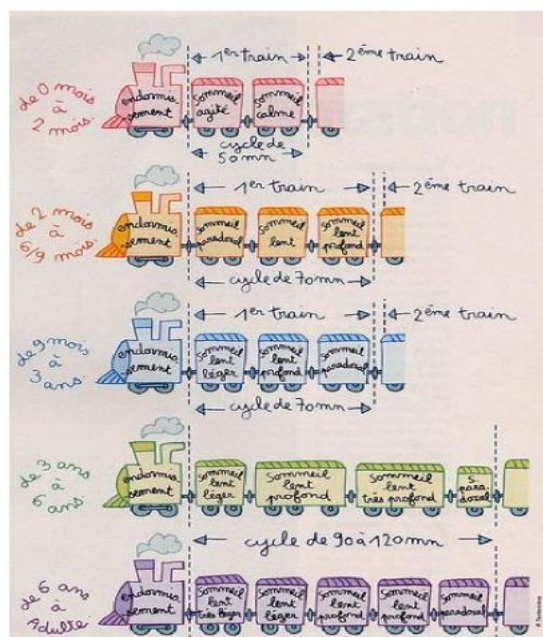 de 0 mois
à
2 mois.
endormis-
sement
1er train
2ème train
sommeil
agité
sommeil
calme
cycle de
50 mn
de 2 mois
à
6/9 mois.
endormis-
sement
1er train
2ème train
sommeil
paradoxal
sommeil
lent
sommeil
lent
profond
cycle de 70 mn
de 9 mois
à
3 ans.
endormis-
sement
1er train
2ème train
sommeil
lent
léger
sommeil
lent
profond
sommeil
paradoxal
cycle de 70 mn
de 3 ans
à
6 ans.
endormis-
sement
sommeil
lent
léger
sommeil
lent
profond
sommeil
lent
très profond
S.
para-
doxal
cycle de 90 à 120 mn
de 6 ans
à
Adulte
endormis-
sement
sommeil
lent
très léger
sommeil
lent
léger
sommeil
lent
profond
sommeil
lent
profond
sommeil
paradoxal